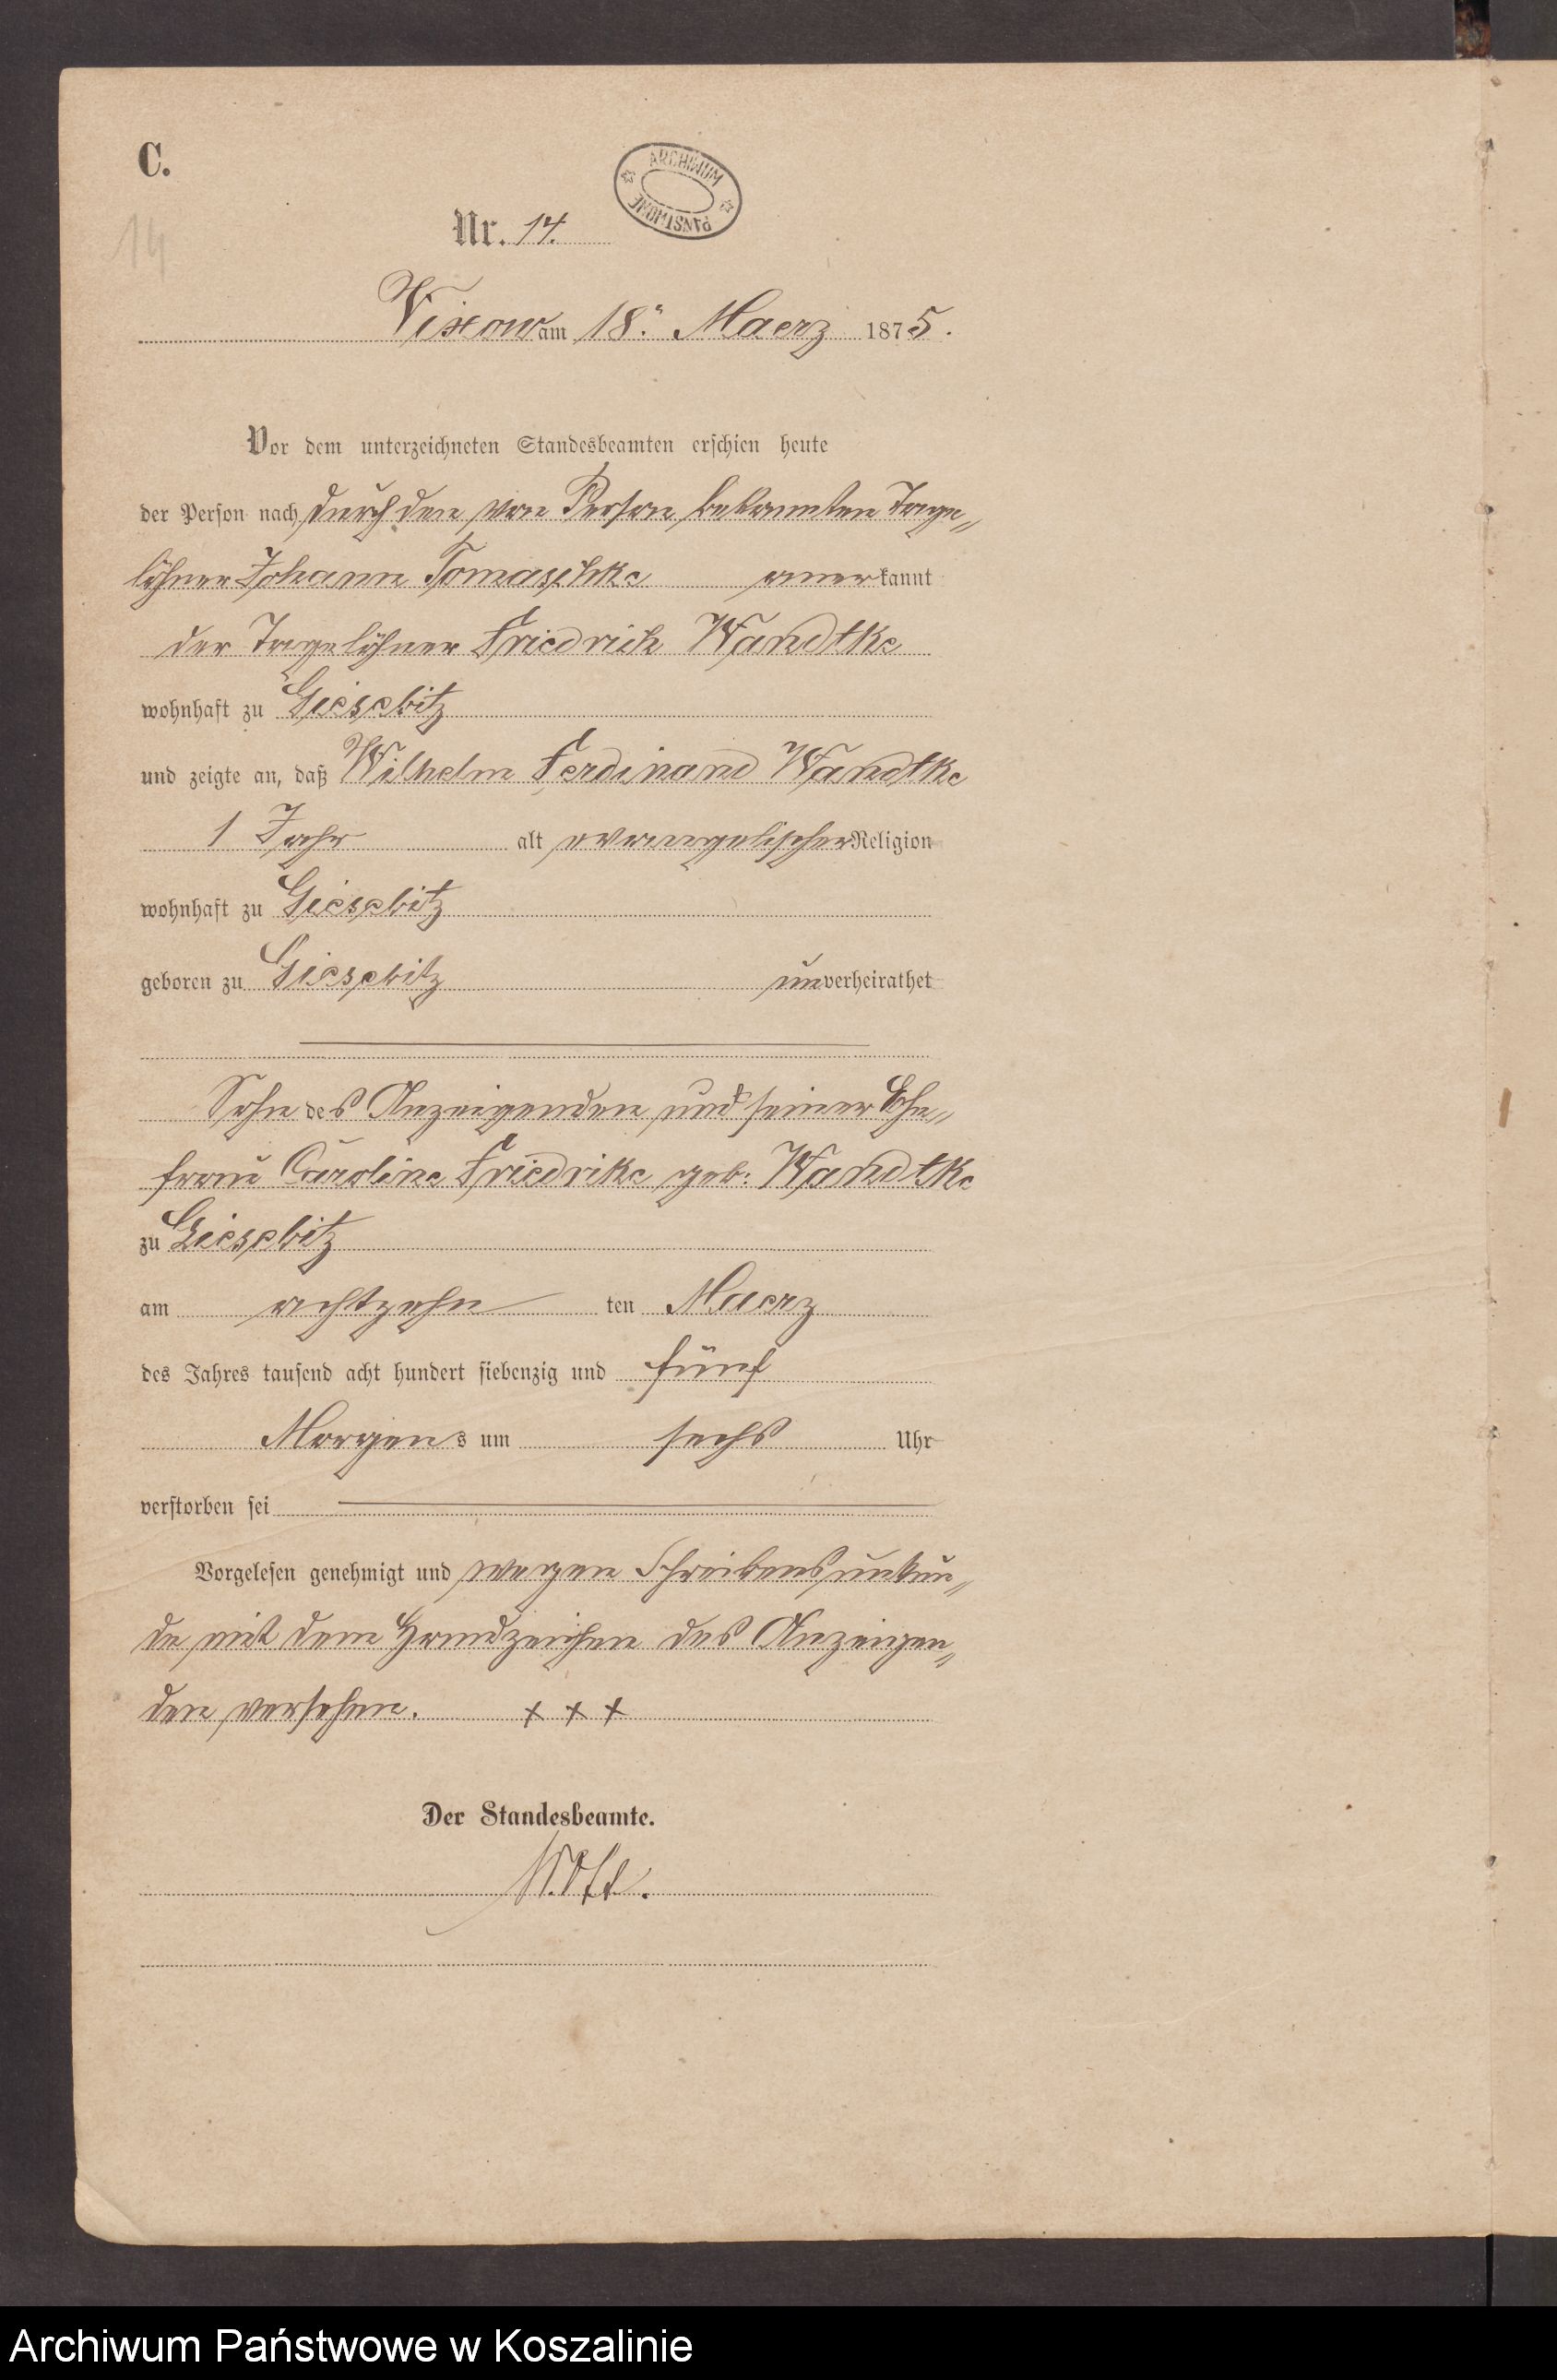 C.
ARCHIWUM
PAŃSTWOWE
14
Nr. 14.
Vixow am 18. Maerz 1875.
Vor dem unterzeichneten Standesbeamten erschien heute
der Person nach durch den von Person bekannten Tage„
löhner Johann Tomaschke anerkannt
der Tagelöhner Friedrich Wandtke
wohnhaft zu Giesebitz
und zeigte an, daß Wilhelm Ferdinand Wandtke
1 Jahr alt evangelischer Religion
wohnhaft zu Giesebitz
geboren zu Giesebitz unverheirathet
Sohn des Anzeigenden und seiner Ehe„
frau Caroline Friedrike geb: Wandtke
zu Giesebitz
am achtzehn ten Maerz
des Jahres tausend acht hundert siebenzig und fünf
Morgens um sechs Uhr
verstorben sei
Vorgelesen genehmigt und wegen Schreibensunkun„
de mit dem Handzeichen des Anzeigen„
den versehen. + + +
Der Standesbeamte.
Archiwum Państwowe w Koszalinie